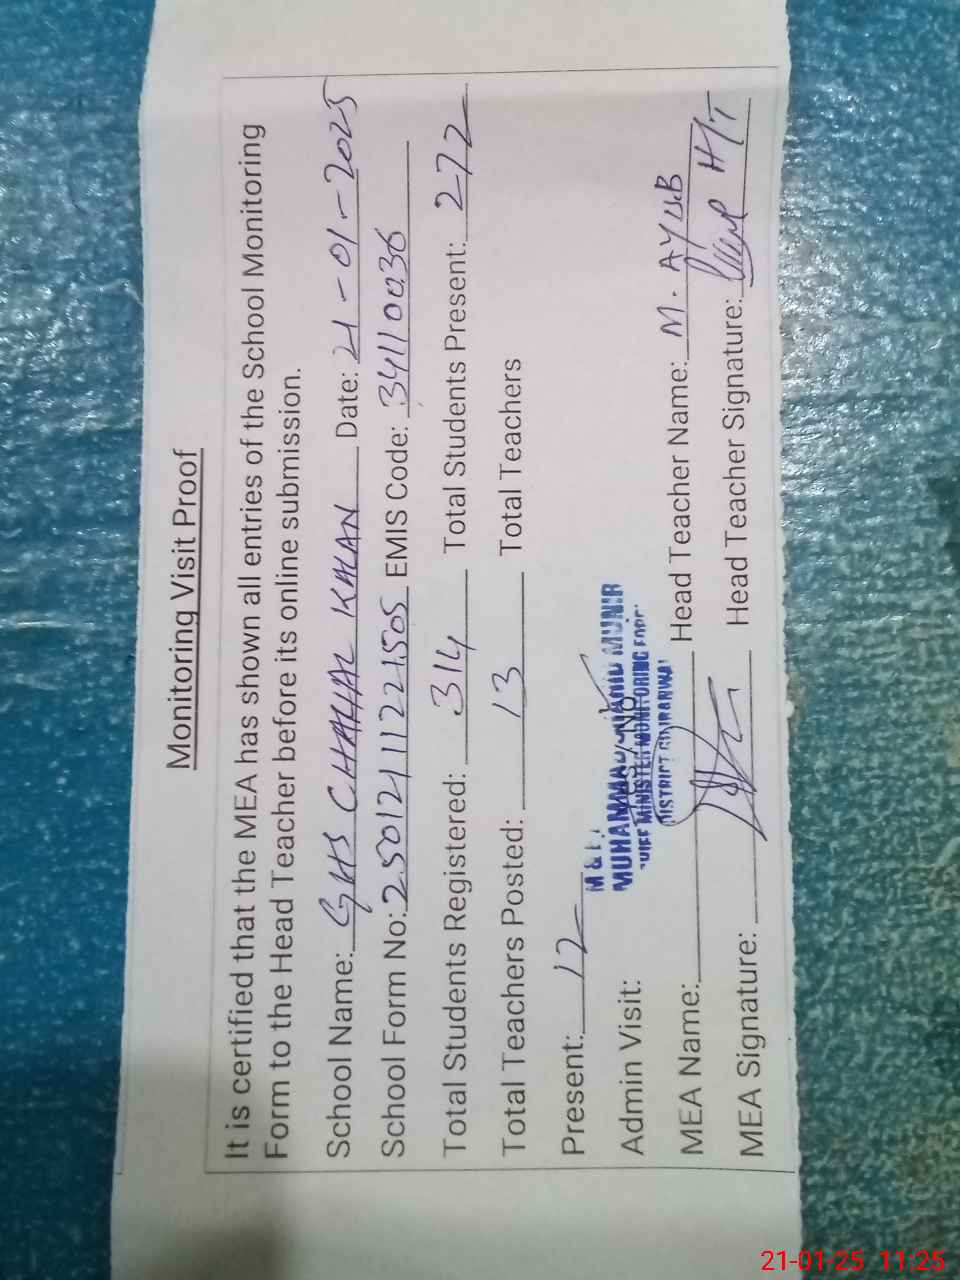 Monitoring Visit Proof
It is certified that the MEA has shown all entries of the School Monitoring
Form to the Head Teacher before its online submission.
School Name: GHS CHAHAL KALAN Date: 21-01-2025
School Form No: 25012111221505 EMIS Code: 34110036
Total Students Registered: 314 Total Students Present: 272
Total Teachers Posted: 13 Total Teachers
Present: 12
Admin Visit: Yes / No
MUHAMMAD MUNIR
CHIEF MINISTER MONITORING FORCE
DISTRICT GUJRANWALA
MEA Name: Head Teacher Name: M. AYUB
MEA Signature: Head Teacher Signature: H/T
21-01-25 11:25